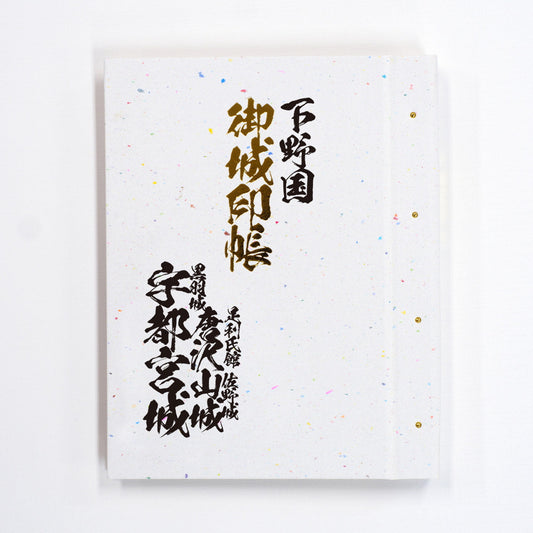 下野国
御城印帳
足利氏館 佐野城
唐沢山城
黒羽城
宇都宮城